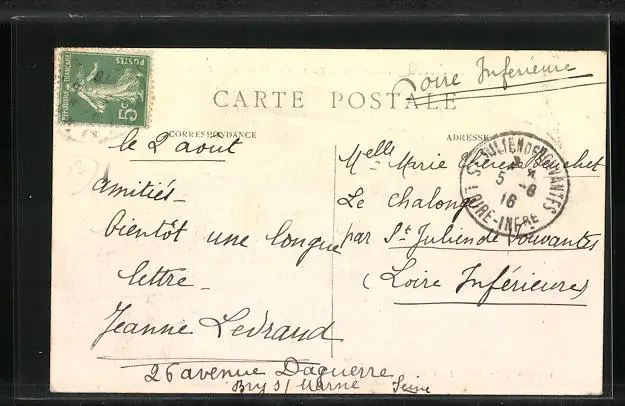 Loire Inférieure
POSTES
RÉPUBLIQUE FRANÇAISE
5c
CARTE POSTALE
CORRESPONDANCE
ADRESSE
le 2 août
amitiés_
bientôt une longue
lettre_
Jeanne
26 avenue Daguerre
Bry s/ Marne Seine
Melles Marie Thérèse
Le Chalonge
par St Julien de Vouvantes
(Loire Inférieure)
ST JULIEN DE VOUVANTES
5 -8
16
LOIRE-INFRE